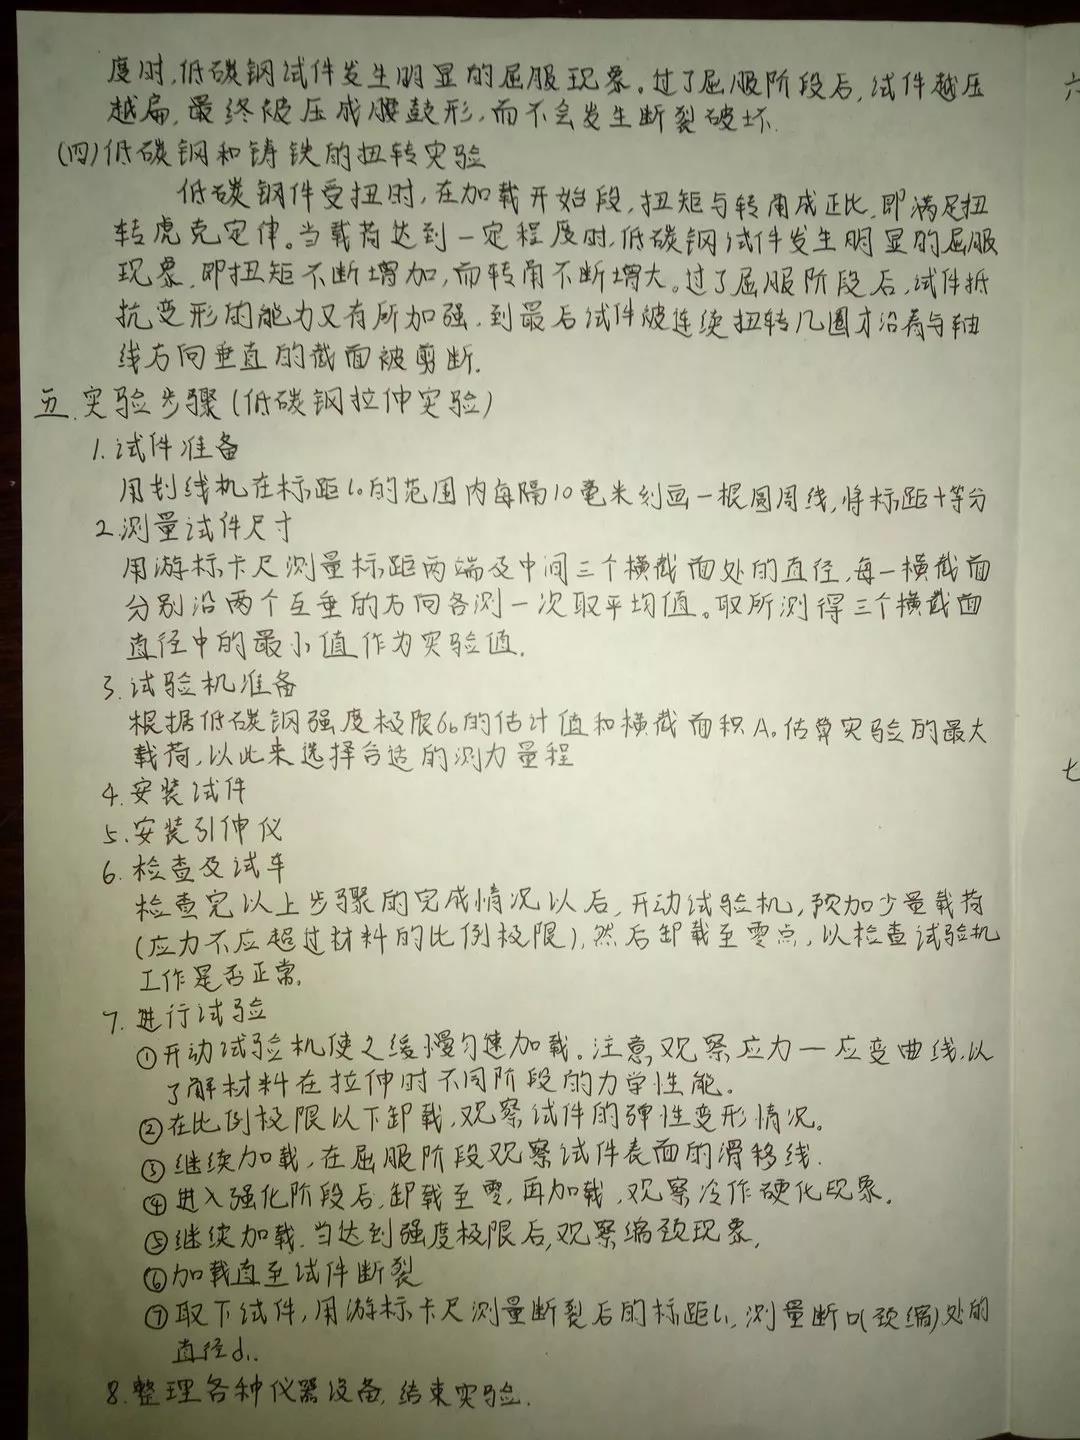 度时,低碳钢试件发生明显的屈服现象。过了屈服阶段后,试件越压
越扁,最终被压成腰鼓形,而不会发生断裂破坏.
(四)低碳钢和铸铁的扭转实验
低碳钢件受扭时,在加载开始段,扭矩与转角成正比,即满足扭
转虎克定律。当载荷达到一定程度时,低碳钢试件发生明显的屈服
现象,即扭矩不断增加,而转角不断增大。过了屈服阶段后,试件抵
抗变形的能力又有所加强,到最后试件被连续扭转几圈才沿着与轴
线方向垂直的截面被剪断.
五.实验步骤(低碳钢拉伸实验)
1.试件准备
用划线机在标距l₀的范围内每隔10毫米刻画一根圆周线,将标距十等分
2.测量试件尺寸
用游标卡尺测量标距两端及中间三个横截面处的直径,每一横截面
分别沿两个互垂的方向各测一次取平均值。取所测得三个横截面
直径中的最小值作为实验值.
3.试验机准备
根据低碳钢强度极限σb的估计值和横截面积A₀估算实验的最大
载荷,以此来选择合适的测力量程
4.安装试件
5.安装引伸仪
6.检查及试车
检查完以上步骤的完成情况以后,开动试验机,预加少量载荷
(应力不应超过材料的比例极限),然后卸载至零点,以检查试验机
工作是否正常.
7.进行试验
①开动试验机使之缓慢匀速加载。注意观察应力一应变曲线,以
了解材料在拉伸时不同阶段的力学性能.
②在比例极限以下卸载,观察试件的弹性变形情况。
③继续加载,在屈服阶段观察试件表面的滑移线.
④进入强化阶段后,卸载至零,再加载,观察冷作硬化现象.
⑤继续加载.当达到强度极限后,观察缩颈现象,
⑥加载直至试件断裂
⑦取下试件,用游标卡尺测量断裂后的标距l₁,测量断口(颈缩)处的
直径d₁.
8.整理各种仪器设备,结束实验.
六
七